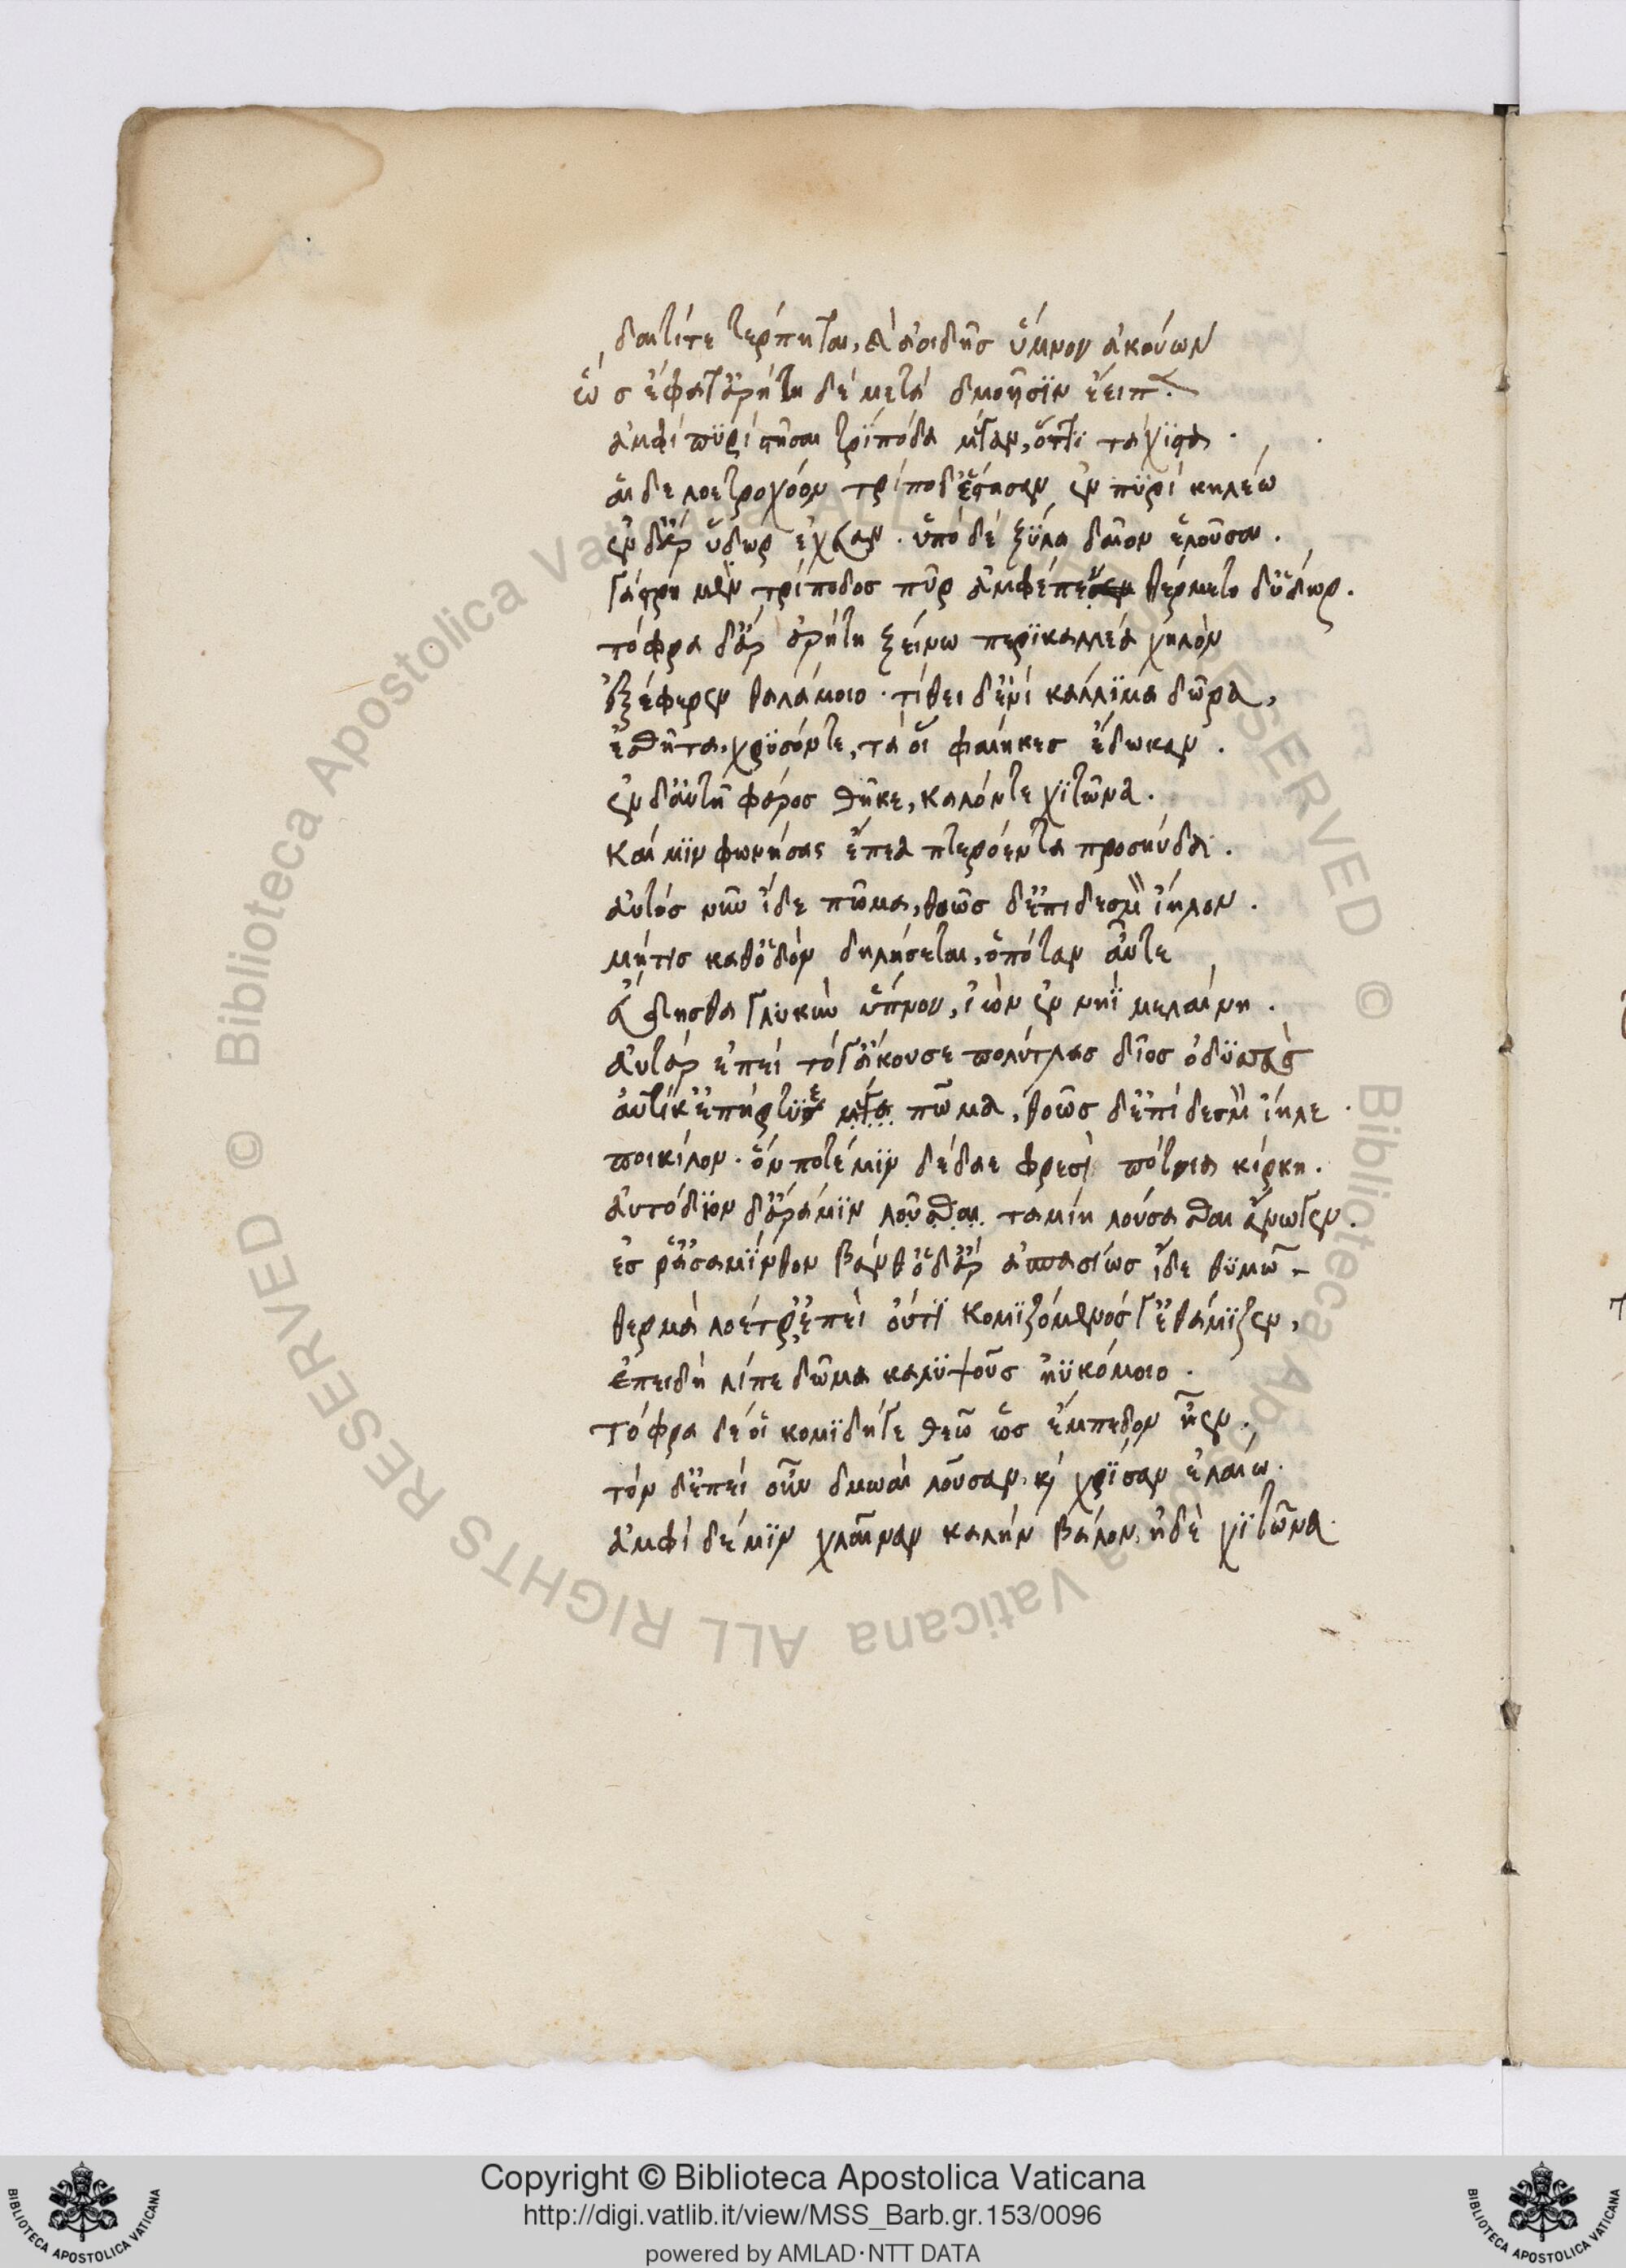 δαιτίτε τέρπηται, καὶ ἀοιδῆς ὕμνον ἀκούων
ὣς ἔφατ ἀρήτη δὲ μετὰ δμοῆσϊν ἔειπε
ἀμφὶ πϋρὶ στῆσαι τρίποδα μέγαν, ὅττϊ τάχϊστα ·
αἱ δε λοετροχόον τρίποδ ἔστασαν ἐν πϋρὶ κηλέω
ἐν δἂρ ὕδωρ ἔχεαν · ὑπὸ δὲ ξϋλα δαῖον ἑλοῦσαι ·
γάστρη μὲν τρίποδος πῦρ ἄμφεπε θέρμετο δ ὕδωρ ·
τόφρα δἂρ ἀρήτη ξείνω περϊκαλλέα χηλὸν
ἐξέφερεν θαλάμοιο · τίθει δ ἐνὶ κάλλϊμα δῶρα,
ἐσθῆτα, χρϋσόντε, τά οἱ φαίηκεσ ἔδωκαν ·
ἐν δ αὐτῆ φάρος θῆκε, καλόντε χϊτῶνα ·
καί μϊν φωνήσας ἔπεα πτερόεντα προσηύδα ·
αὐτὸς νῦν ἴδε πῶμα, θοῶς δ ἐπι δεσμὸν ἴηλον ·
μήτισ καθ ὁδὸν δηλήσεται, ὁππόταν αὖτε
εὕδησθα γλυκὺν ὕπνον, ἰὼν ἐν νηῒ μελαίνη ·
αὐτὰρ ἐπεὶ τόγ ἄκουσε πολύτλας δῖος ὀδϋσσεὺς
αὐτίκ ἐπήρτϋε μέγα πῶμα, θοῶς δ ἐπὶ δεσμὸν ἴηλε ·
ποικίλον · ὅν ποτέ μϊν δέδαε φρεσὶ πότνια κίρκη ·
αὐτόδϊον δἄρα μϊν λοῦσθαι ταμίη λούσασθαι ἄνωγεν ·
ἐς ῥ ἀσαμϊνθον βάνθ ὁ δἂρ ἀσπασίως ἴδε θϋμῶ
θερμὰ λοέτρ ἐπεὶ οὔτϊ κομϊζόμενός γ ἐθάμϊζεν,
ἐπειδὴ λίπε δῶμα καλϋψοῦς ἠϋκόμοιο ·
τόφρα δέ οἱ κομϊδήγε θεῶ ὣς ἔμπεδον ἦεν ·
τὸν δ ἐπεὶ οὖν δμωαὶ λοῦσαν καὶ χρῖσαν ἐλαίω ·
ἀμφὶ δέ μϊν χλαῖναν καλὴν βάλον ἠδὲ χϊτῶνα ·
Copyright © Biblioteca Apostolica Vaticana
http://digi.vatlib.it/view/MSS_Barb.gr.153/0096
powered by AMLAD·NTT DATA